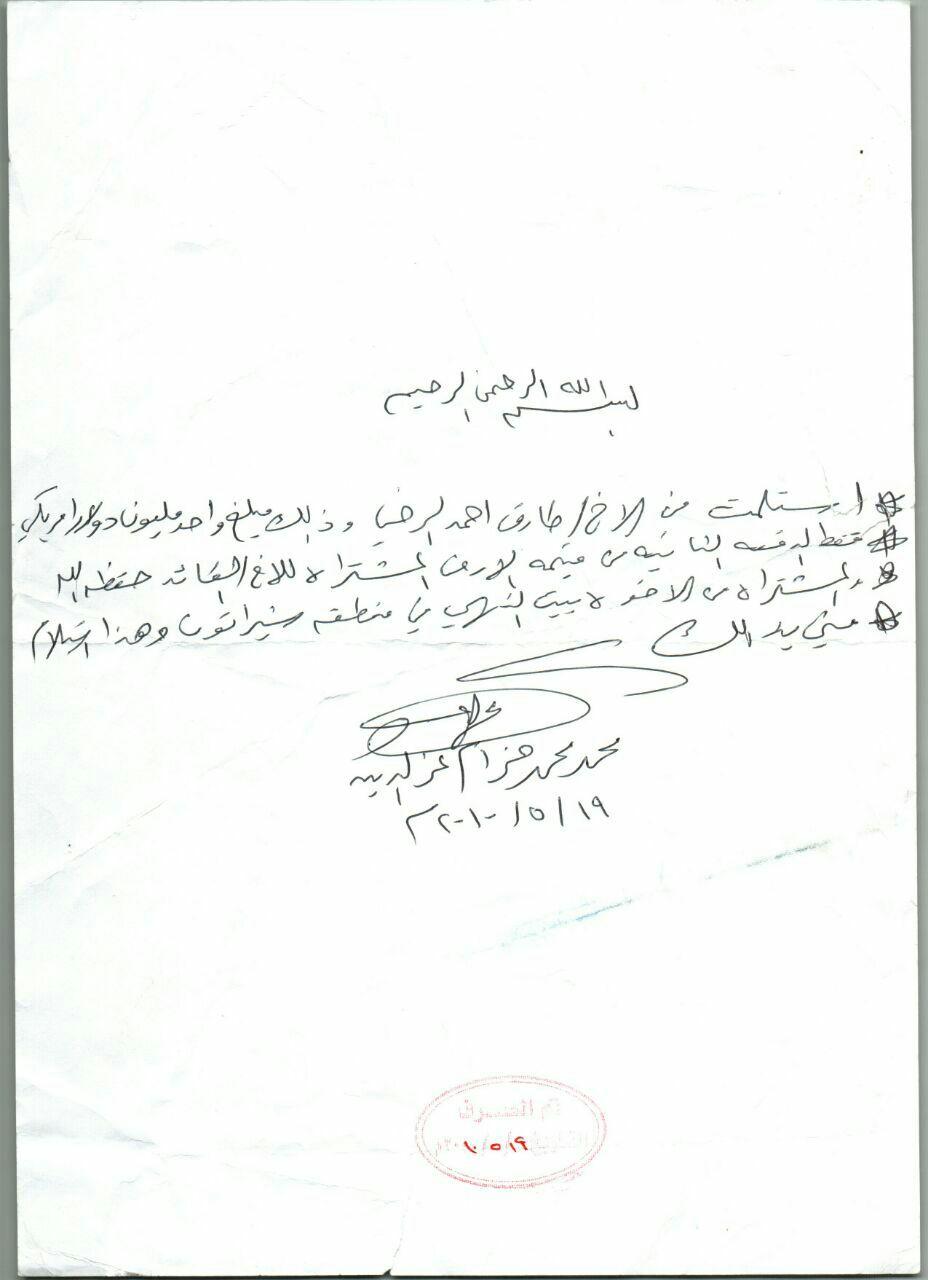 بسم الله الرحمن الرحيم
استلمت من الاخ/ طارق احمد الرضي وذلك مبلغ واحد مليون دولار امريكي
فقط الدفعه الثانيه من قيمه الارض المشتراه للاخ القائد حفظه الله
والمشتراه من الاخوه بيت النهمي في منطقه شيراتون وهذا استلام
مني بذالك
محمد محمد حزام عز الدين
١٩/٥/٢٠١٠م
تم الصرف
التاريخ ١٩/٥/٢٠١٠م